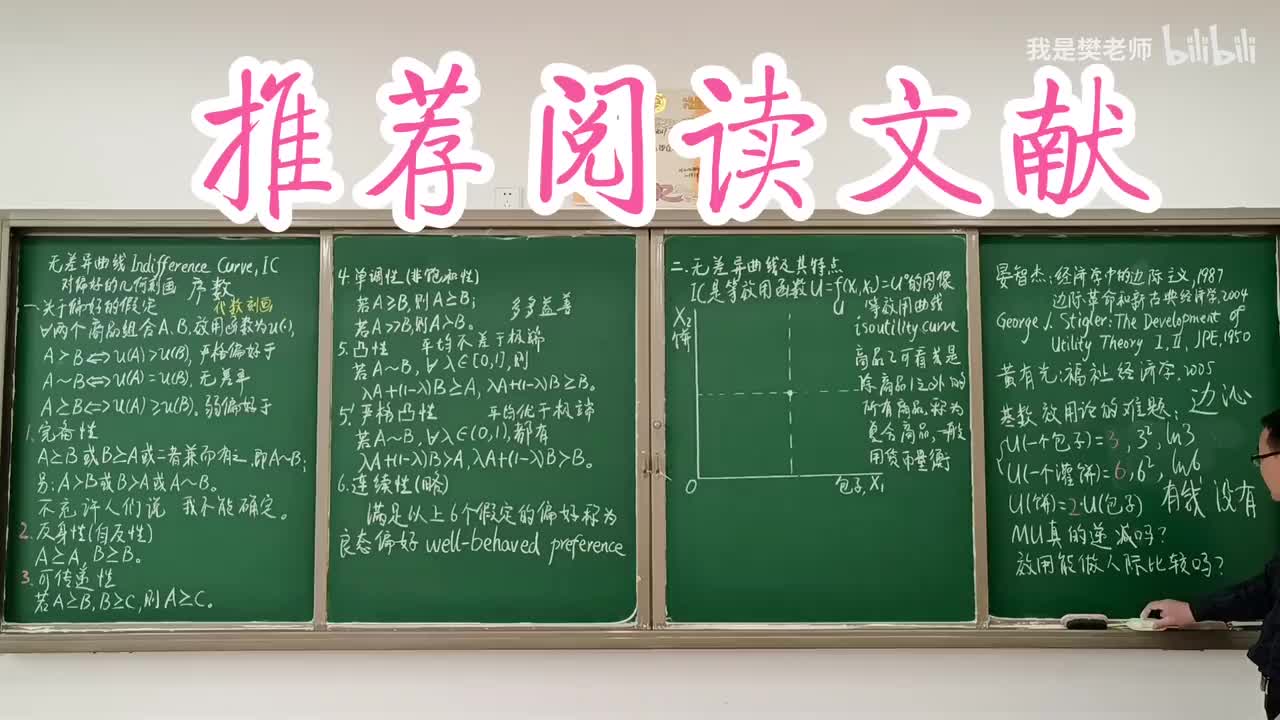 我是樊老师 bilibili
推荐阅读文献
无差异曲线 Indifference Curve, IC
对偏好的几何刻画 序数
一.关于偏好的假定 代数刻画
∀两个商品组合A,B,效用函数为u(·),
A>B⇔u(A)>u(B), 严格偏好于
A∼B⇔u(A)=u(B), 无差异
A≥B⇔u(A)≥u(B), 弱偏好于
1.完备性
A≥B 或 B≥A 或二者兼而有之,即A∼B;
另:A>B或B>A或A∼B。
不允许人们说 我不能确定。
2.反身性(自反性)
A≥A, B≥B。
3.可传递性
若A≥B,B≥C,则A≥C。
4.单调性(非饱和性)
若A≥B,则A≥B; 多多益善
若A>>B,则A>B。
5.凸性 平均不差于极端
若A∼B, ∀λ∈[0,1],则
λA+(1-λ)B≥A, λA+(1-λ)B≥B。
5.'严格凸性 平均优于极端
若A∼B, ∀λ∈(0,1),都有
λA+(1-λ)B>A, λA+(1-λ)B>B。
6.连续性(略)
满足以上6个假定的偏好称为
良态偏好 well-behaved preference
二.无差异曲线及其特点
IC是等效用函数U=f(X₁,X₂)=U⁰的图像
U
等效用曲线
isoutility curve
X₂
饼
商品2可看成是
除商品1之外的
所有商品,称为
复合商品,一般
用货币量衡
0
包子,X₁
晏智杰:经济学中的边际主义,1987
边际革命和新古典经济学,2004
George J. Stigler: The Development of
Utility Theory I, II, JPE,1950
黄有光:福祉经济学,2005
基数效用论的难题: 边沁
U(一个包子)=3, 3², ln3
U(一个灌饼)=6, 6², ln6
U(饼)=2·U(包子) 有钱 没有
MU真的递减吗?
效用能做人际比较吗?